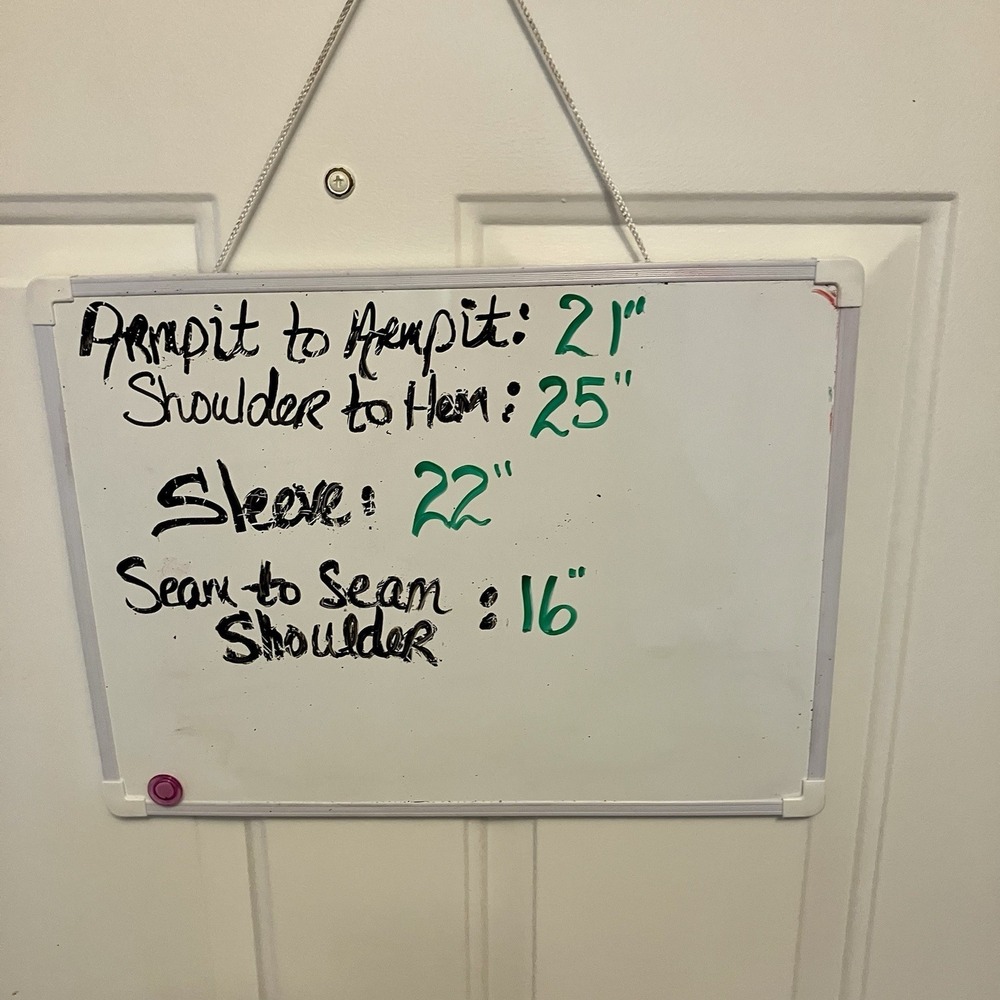 Armpit to Armpit: 21"
Shoulder to Hem: 25"
Sleeve: 22"
Seam to Seam : 16"
Shoulder